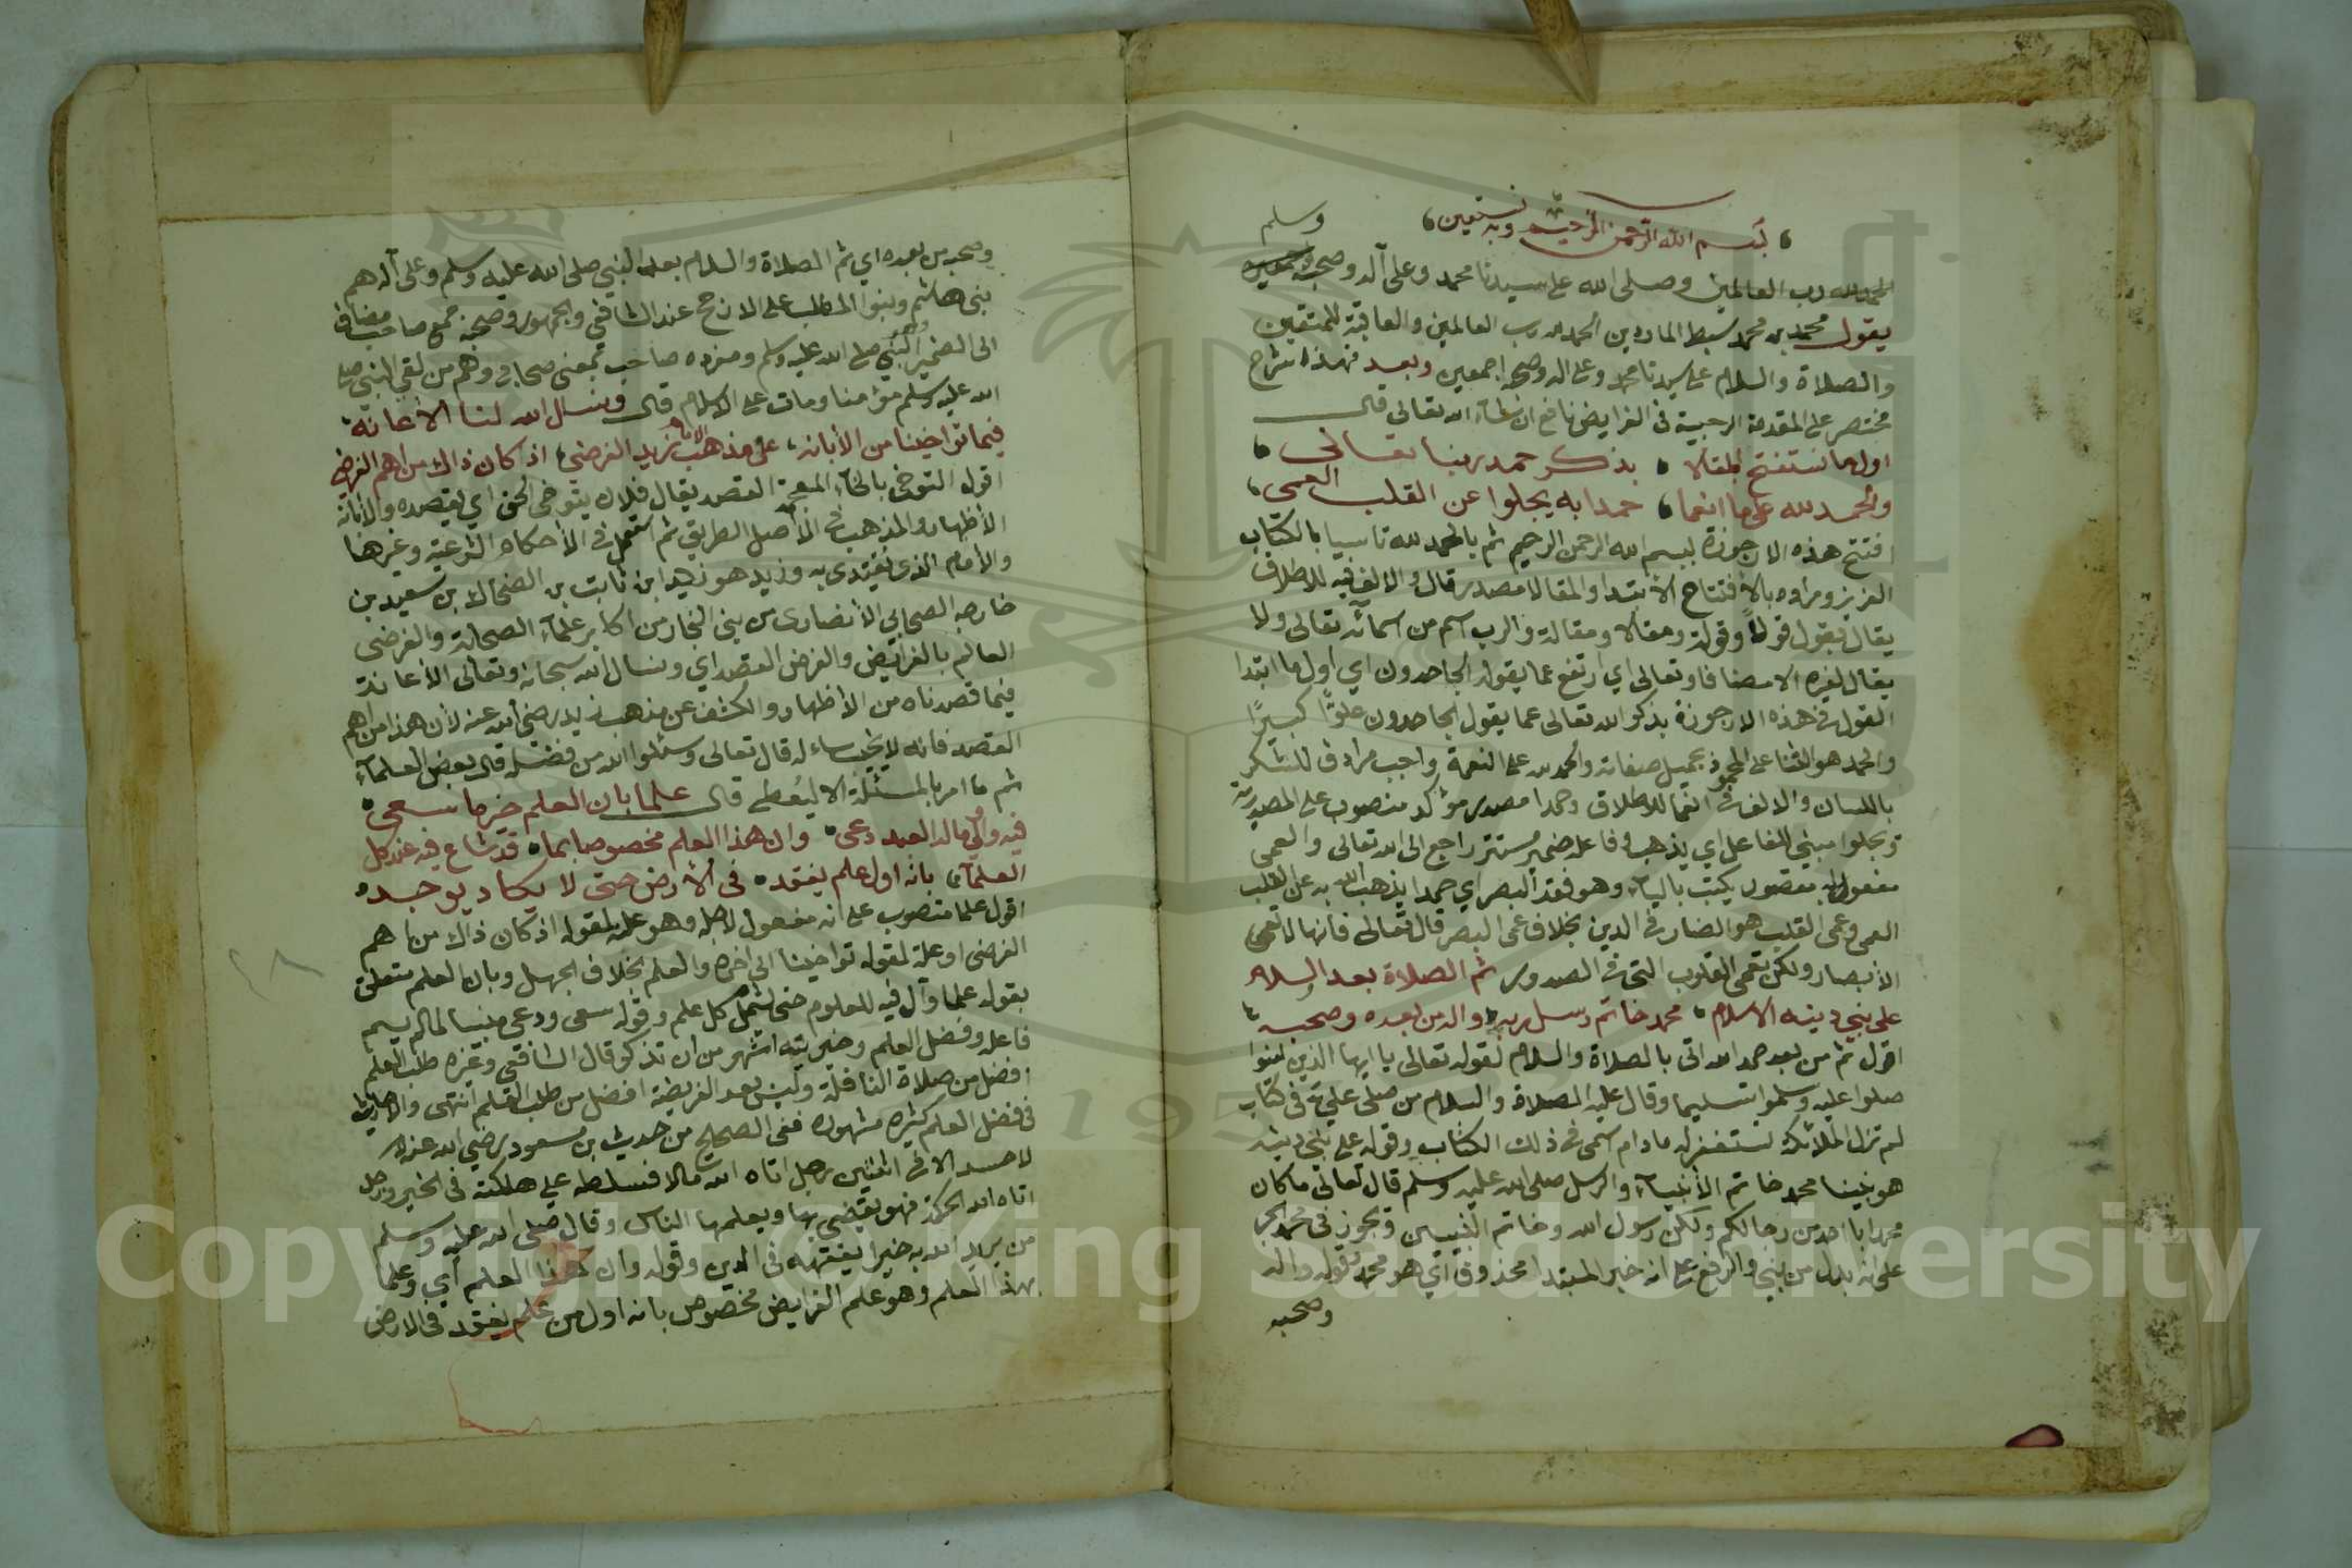 بسم الله الرحمن الرحيم وبه نستعين
وسلم
الحمد لله رب العالمين وصلى الله على سيدنا محمد وعلى آله وصحبه
يقول محمد بن محمد سبط الماردين الحمد لله رب العالمين والعاقبة للمتقين
والصلاة والسلام على سيدنا محمد وعلى اله وصحبه اجمعين وبعد فهذا شرح
مختصر على المقدمة الرحبية في الفرايض نافع ان شاء الله تعالى قال
اول ما نستفتح المقالا بذكر حمد ربنا تعالى
والحمد لله على ما انعما حمدا به يجلوا عن القلب العمى
افتتح هذه الارجوزة ببسم الله الرحمن الرحيم ثم بالحمد لله تاسيا بالكتاب
العزيز ومراده بالأفتتاح الأبتدا والمقالا مصدر قال والالف فيه للاطلاق
يقال يقول قولاً وقولة ومقالا ومقالة والرب اسم من اسمآئه تعالى ولا
يقال لغيره الا مضافا وتعالى اي ارتفع عما يقول الجاحدون اي اول ما ابتدا
القول في هذه الارجوزة بذكر الله تعالى عما يقول الجاحدون علوًا كبيرًا
والحمد هو الثنا على المحمود بجميل صفاته والحمد لله على النعمة واجب مرادف للشكر
باللسان والالف في انعما للاطلاق وحمدا مصدر مؤكد منصوب على المصدرية
ويجلوا مبني للفاعل اي يذهب وفاعله ضمير مستتر راجع الى الله تعالى والعمى
مفعول به مقصور يكتب باليآء وهو فقد البصر اي حمدا يذهب الله به عن القلب
العمى وعمى القلب هو الضار في الدين بخلاف عمى البصر قال تعالى فانها لا تعمى
الأبصار ولكن تعمى القلوب التي في الصدور ثم الصلاة بعد السلام
على نبي دينه الاسلام محمد خاتم رسل ربه واله من بعده وصحبه
اقول ثم من بعد حمد الله اتى بالصلاة والسلام لقوله تعالى يا ايها الذين امنوا
صلوا عليه وسلموا تسليما وقال عليه الصلاة والسلام من صلى علي في كتاب
لم تزل الملائكة تستغفر له ما دام اسمي في ذلك الكتاب وقوله على نبي دينه
هو نبينا محمد خاتم الأنبيآء والرسل صلى الله عليه وسلم قال تعالى ما كان
محمد ابا احد من رجالكم ولكن رسول الله وخاتم النبيين ويجوز في محمد الجر
على انه بدل من نبي والرفع على انه خبر المبتدا محذوف اي هو محمد وقوله واله
وصحبه
وصحبه من بعده اي ثم الصلاة والسلام بعد النبي صلى الله عليه وسلم وعلى آله هم
بني هاشم وبنوا المطلب على الارجح عند الشافعي والجمهور وصحبه جمع صاحب مضاف
الى الضمير النبي صلى الله عليه وسلم ومفرده صاحب بمعنى صحابي وهم من لقي النبي صلى
الله عليه وسلم مؤمنا ومات على الاسلام قال ونسال الله لنا الأعانة
فيما تواخينا من الأبانه على مذهب الامام زيد الفرضي اذ كان ذاك من اهم الغرض
اقول التوخي بالخآء المعجمة القصد يقال فلان يتوخى الحق اي يقصده والأبانة
الأظهار والمذهب في الأصل الطريق ثم استعمل في الأحكام الشرعية وغيرها
والأمام الذي يقتدى به وزيد هو زيد ابن ثابت بن الضحاك بن سعيد بن
خارجه الصحابي الأنصاري من بني النجار من اكابر علمآء الصحابة والفرضي
العالم بالفرائض والغرض القصد اي ونسال الله سبحانه وتعالى الأعانة
فيما قصدناه من الأظهار والكشف عن مذهب زيد رضي الله عنه لأن هذا من اهم
القصد فانه لا يخيب ساءله قال تعالى وسئلوا الله من فضله قال بعض العلمآء
ثم ما امر بالمسئلة الا ليُعطي قال علما بان العلم خير ما سعى
فيه واولى ماله العبد دعى وان هذا العلم مخصوص بما قد شاع فيه عند كل
العلمآء بانه اول علم يفقد في الأرض حتى لا يكاد يوجد
اقول علما منصوب على انه مفعول لاجله وهو علة لقوله اذ كان ذاك من اهم
الغرض او علة لقوله تواخينا الى اخره والعلم بخلاف الجهل وبان العلم متعلق
بقوله علما وآل فيه للعلوم حتى تشمل كل علم وقوله سعى ودعى مبنيا لما لم يسم
فاعله وفضل العلم وخيريته اشهر من ان تذكر قال الشافعي وغيره طلب العلم
افضل من صلاة النافلة وليس بعد الفريضة افضل من طلب العلم انتهى والاحاديث
في فضل العلم كثيره مشهوره ففي الصحيح من حديث بن مسعود رضي الله عنه
لا حسد الا في اثنتين رجل اتاه الله مالا فسلطه على هلكته في الخير ورجل
اتاه الله الحكمة فهو يقضي بها ويعلمها الناس وقال صلى الله عليه وسلم
من يريد الله به خيرا يفقهه في الدين وقوله وان هذا العلم اي وعلما
بهذا العلم وهو علم الفرايض مخصوص بانه اول من علم يفقد في الارض
Copyright © King Saud University
195